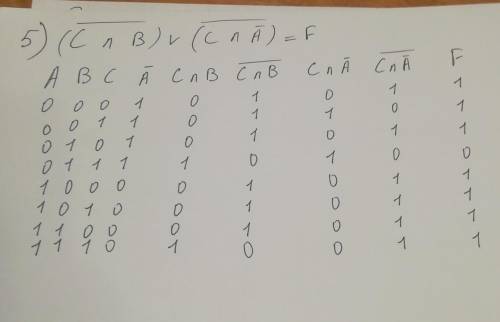 5) (C̅ ̅∩̅ ̅B̅) v (C̅ ̅∩̅ ̅Ā) = F
A B C Ā C∩B C̅∩̅B̅ C∩Ā C̅∩̅Ā̅ F
0 0 0 1 0 1 0 1 1
0 0 1 1 0 1 1 0 1
0 1 0 1 0 1 0 1 1
0 1 1 1 1 0 1 0 0
1 0 0 0 0 1 0 1 1
1 0 1 0 0 1 0 1 1
1 1 0 0 0 1 0 1 1
1 1 1 0 1 0 0 1 1